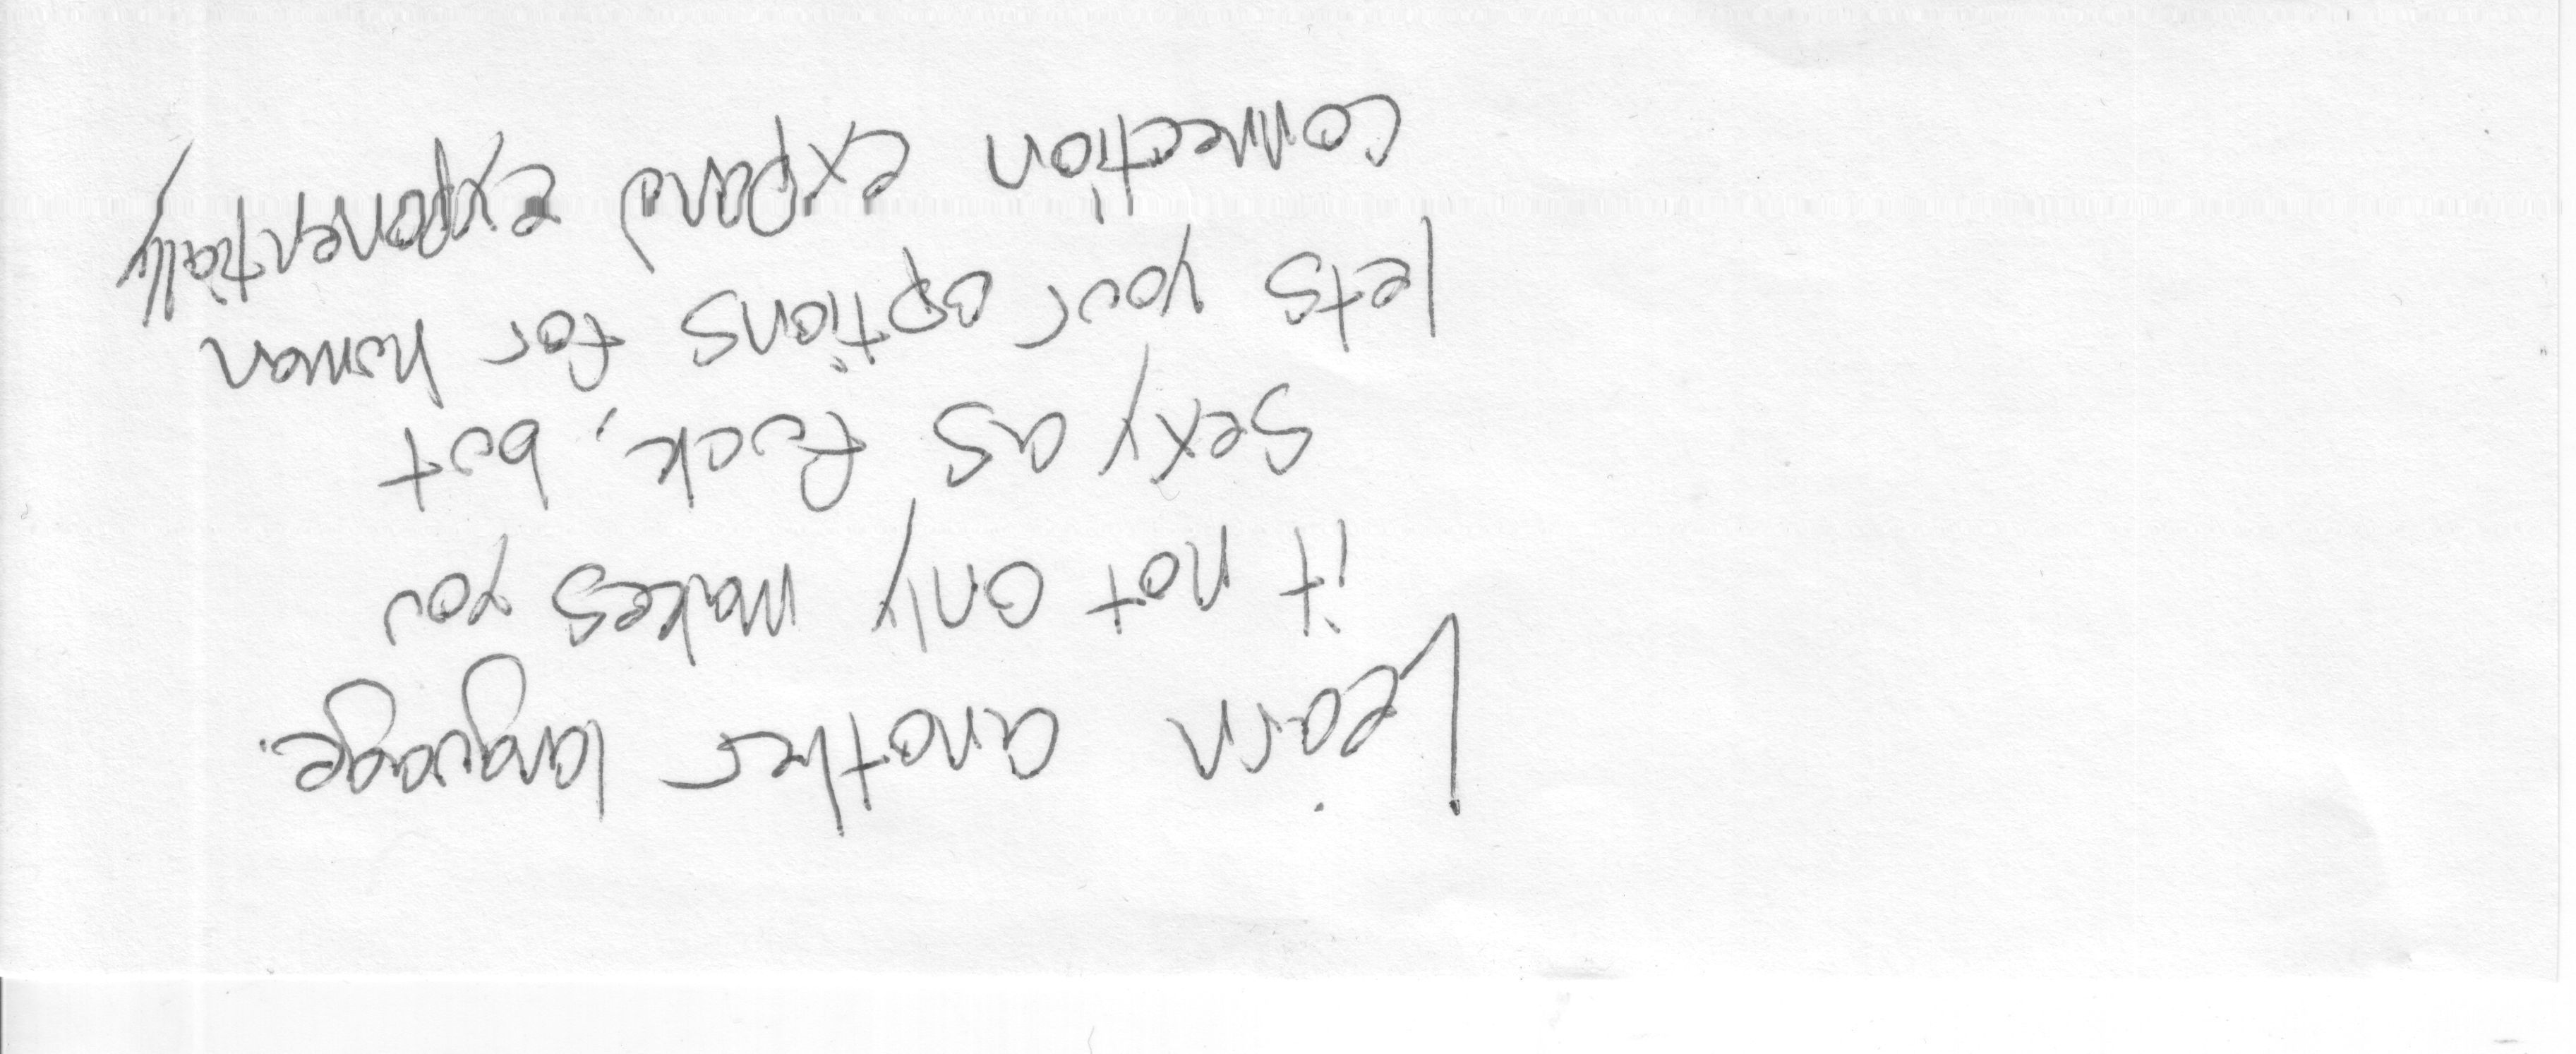 Learn another language.
it not only makes you
sexy as fuck, but
lets your options for human
connection expand exponentially